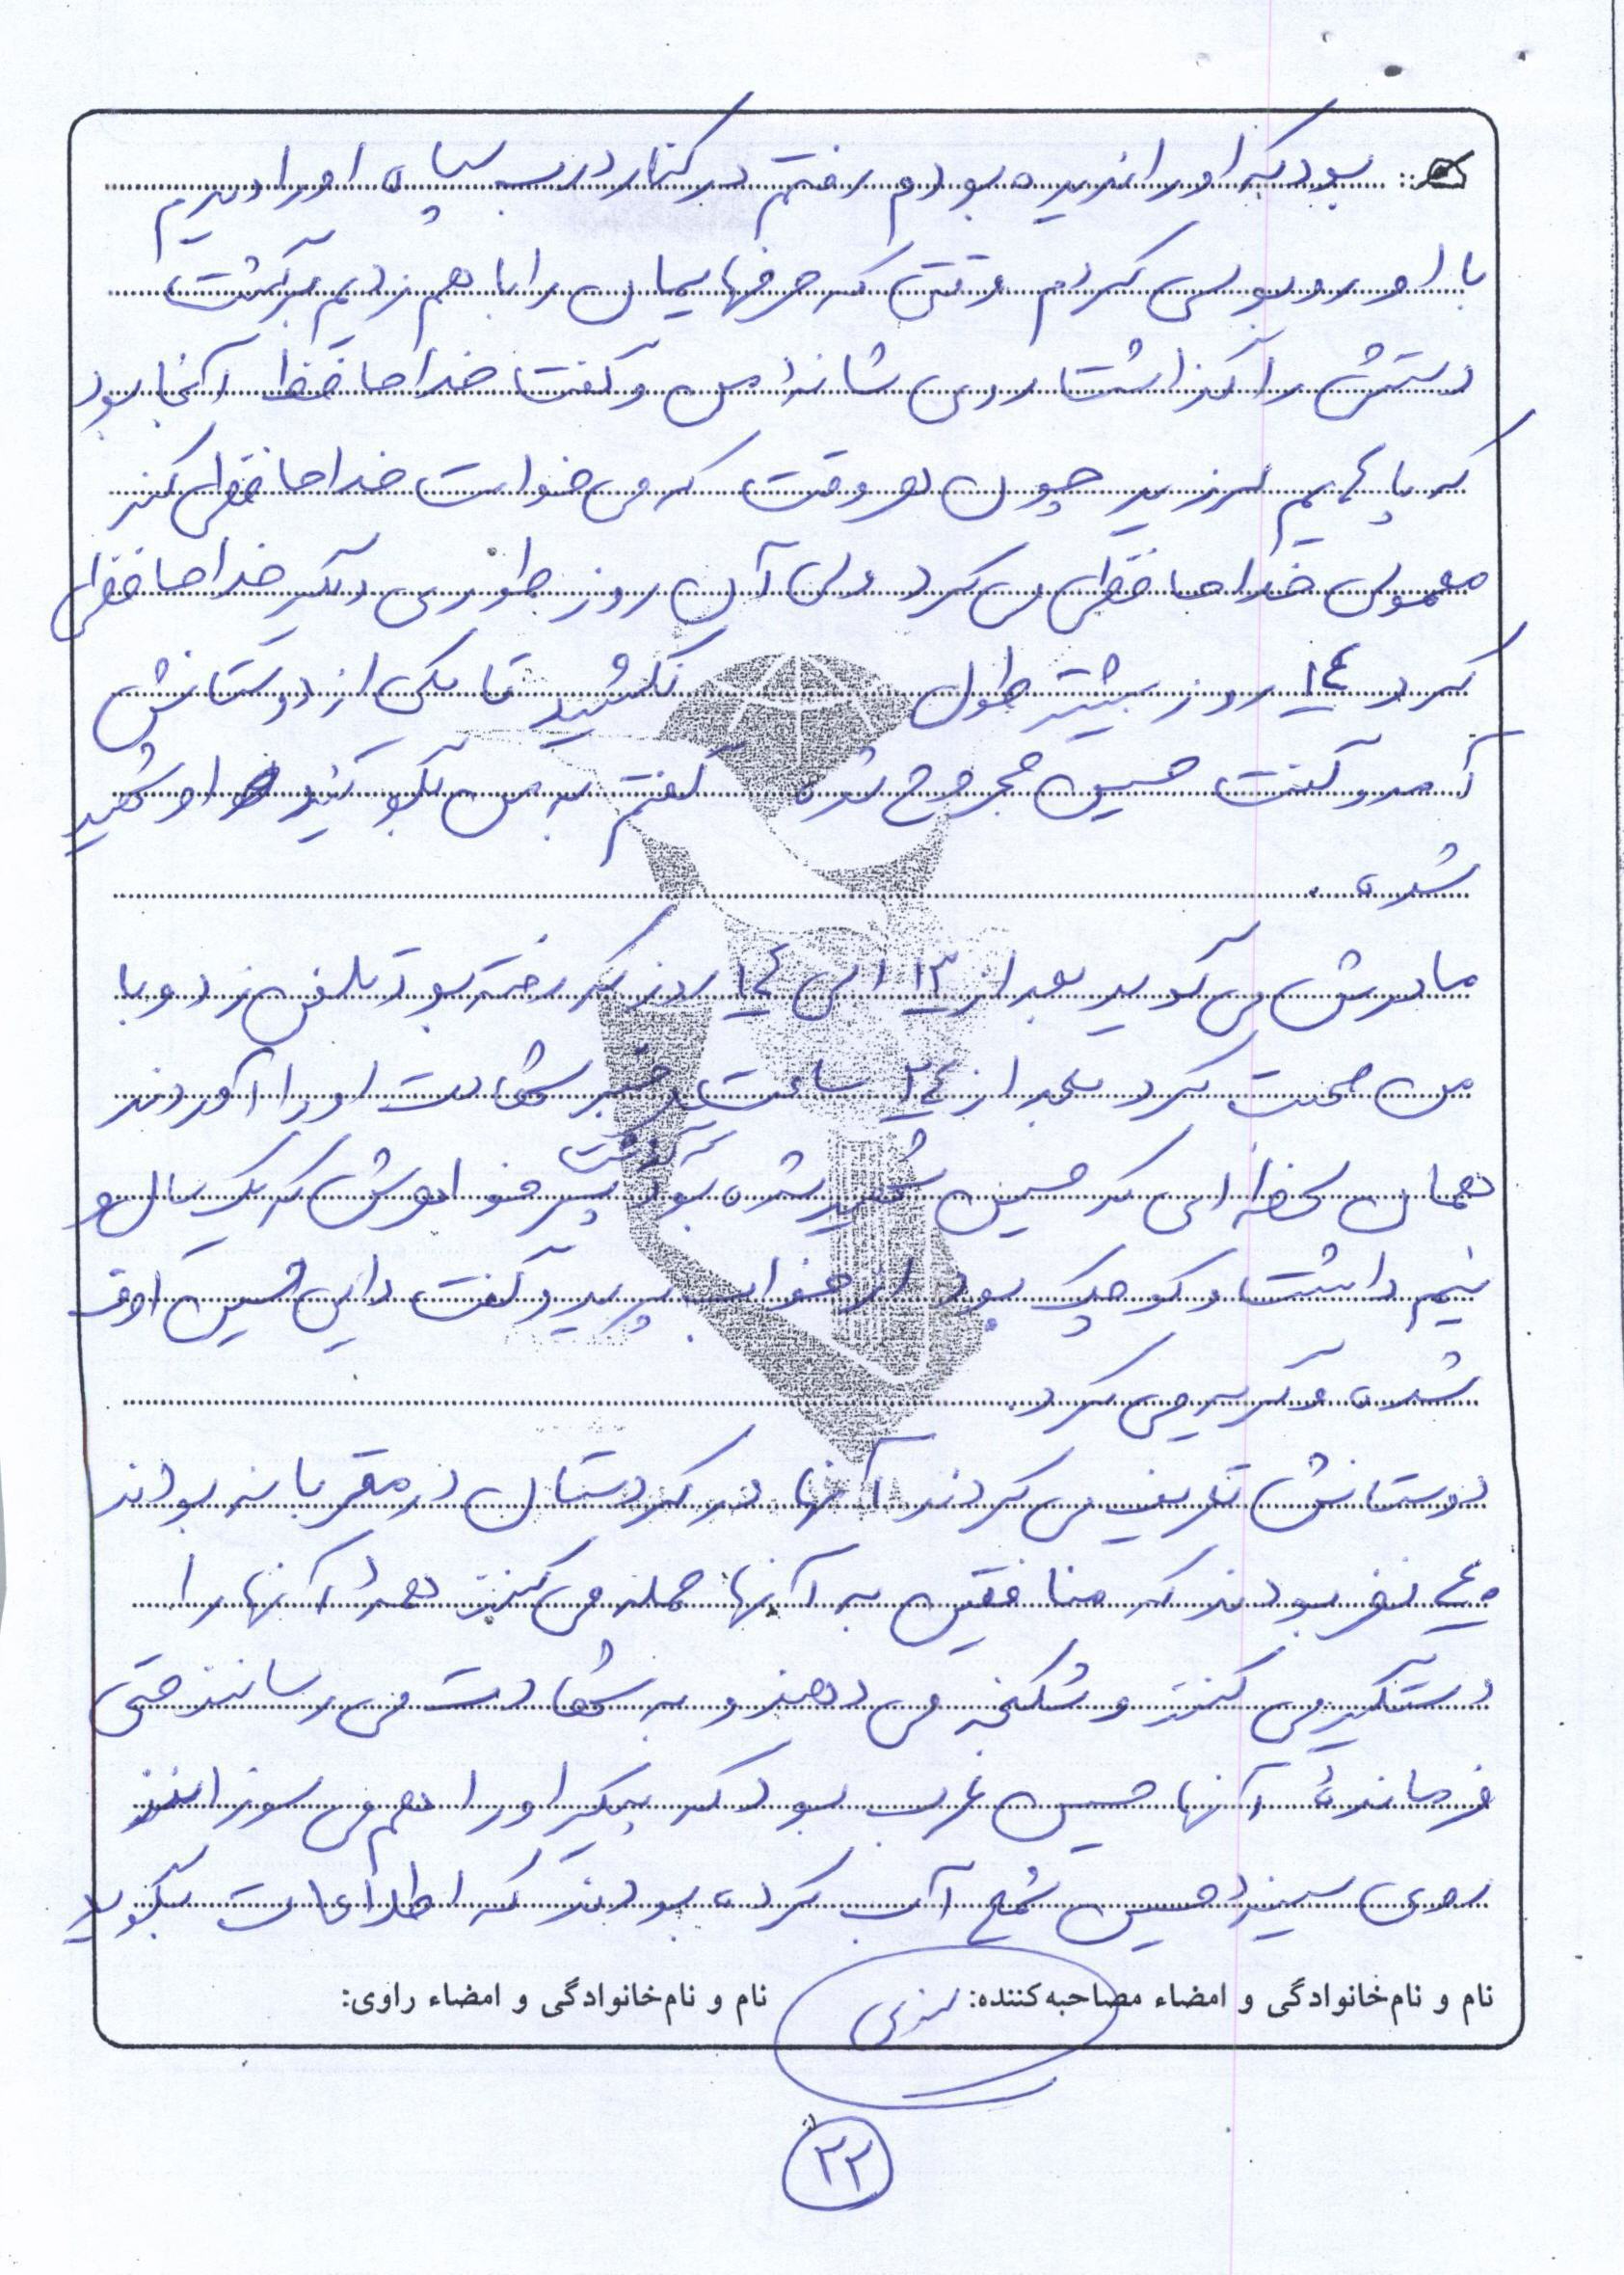 بود که او را ندیده بودم رفتم در کنار درب سپاه او را دیدم
با او روبوسی کردم وقتی که حرفهایمان را با هم زدیم برگشت
دستش را گذاشت روی شانه من و گفت خداحافظ آنجا بود
که پاهایم لرزید چون هر وقت که می خواست خداحافظی کند
معمولی خداحافظی می کرد ولی آن روز طوری دیگر خداحافظی
کرد ١٤ روز بیشتر طول نکشید تا یکی از دوستانش
آمد و گفت حسین مجروح شده گفتم به من بگوئید او شهید
شده.
مادرش می گوید بعد از ١٣ الی ١٤ روز که رفته بود تلفن زد و با
من صحبت کرد بعد از ٢٤ ساعت خبر شهادت او را آوردند
همان لحظه ای که حسین شهید شده بود پسر خواهرش که یک سال و
نیم داشت و کوچک بود از خواب پرید و گفت دایی حسین اوف
شده و گریه می کرد.
دوستانش تعریف می کردند آنها در کردستان در مقر بانه بودند
٤٠ نفر بودند که منافقین به آنها حمله می کنند همهٔ آنها را
دستگیر می کنند و شکنجه می دهند و به شهادت می رسانند حتی
فرماندهٔ آنها حسین عرب بود که پیکر او را هم می سوزانند
روی سینهٔ حسین شمع آب کرده بودند که اطلاعات بگوید
نام و نام‌خانوادگی و امضاء مصاحبه‌کننده: نام و نام‌خانوادگی و امضاء راوی:
٢٢